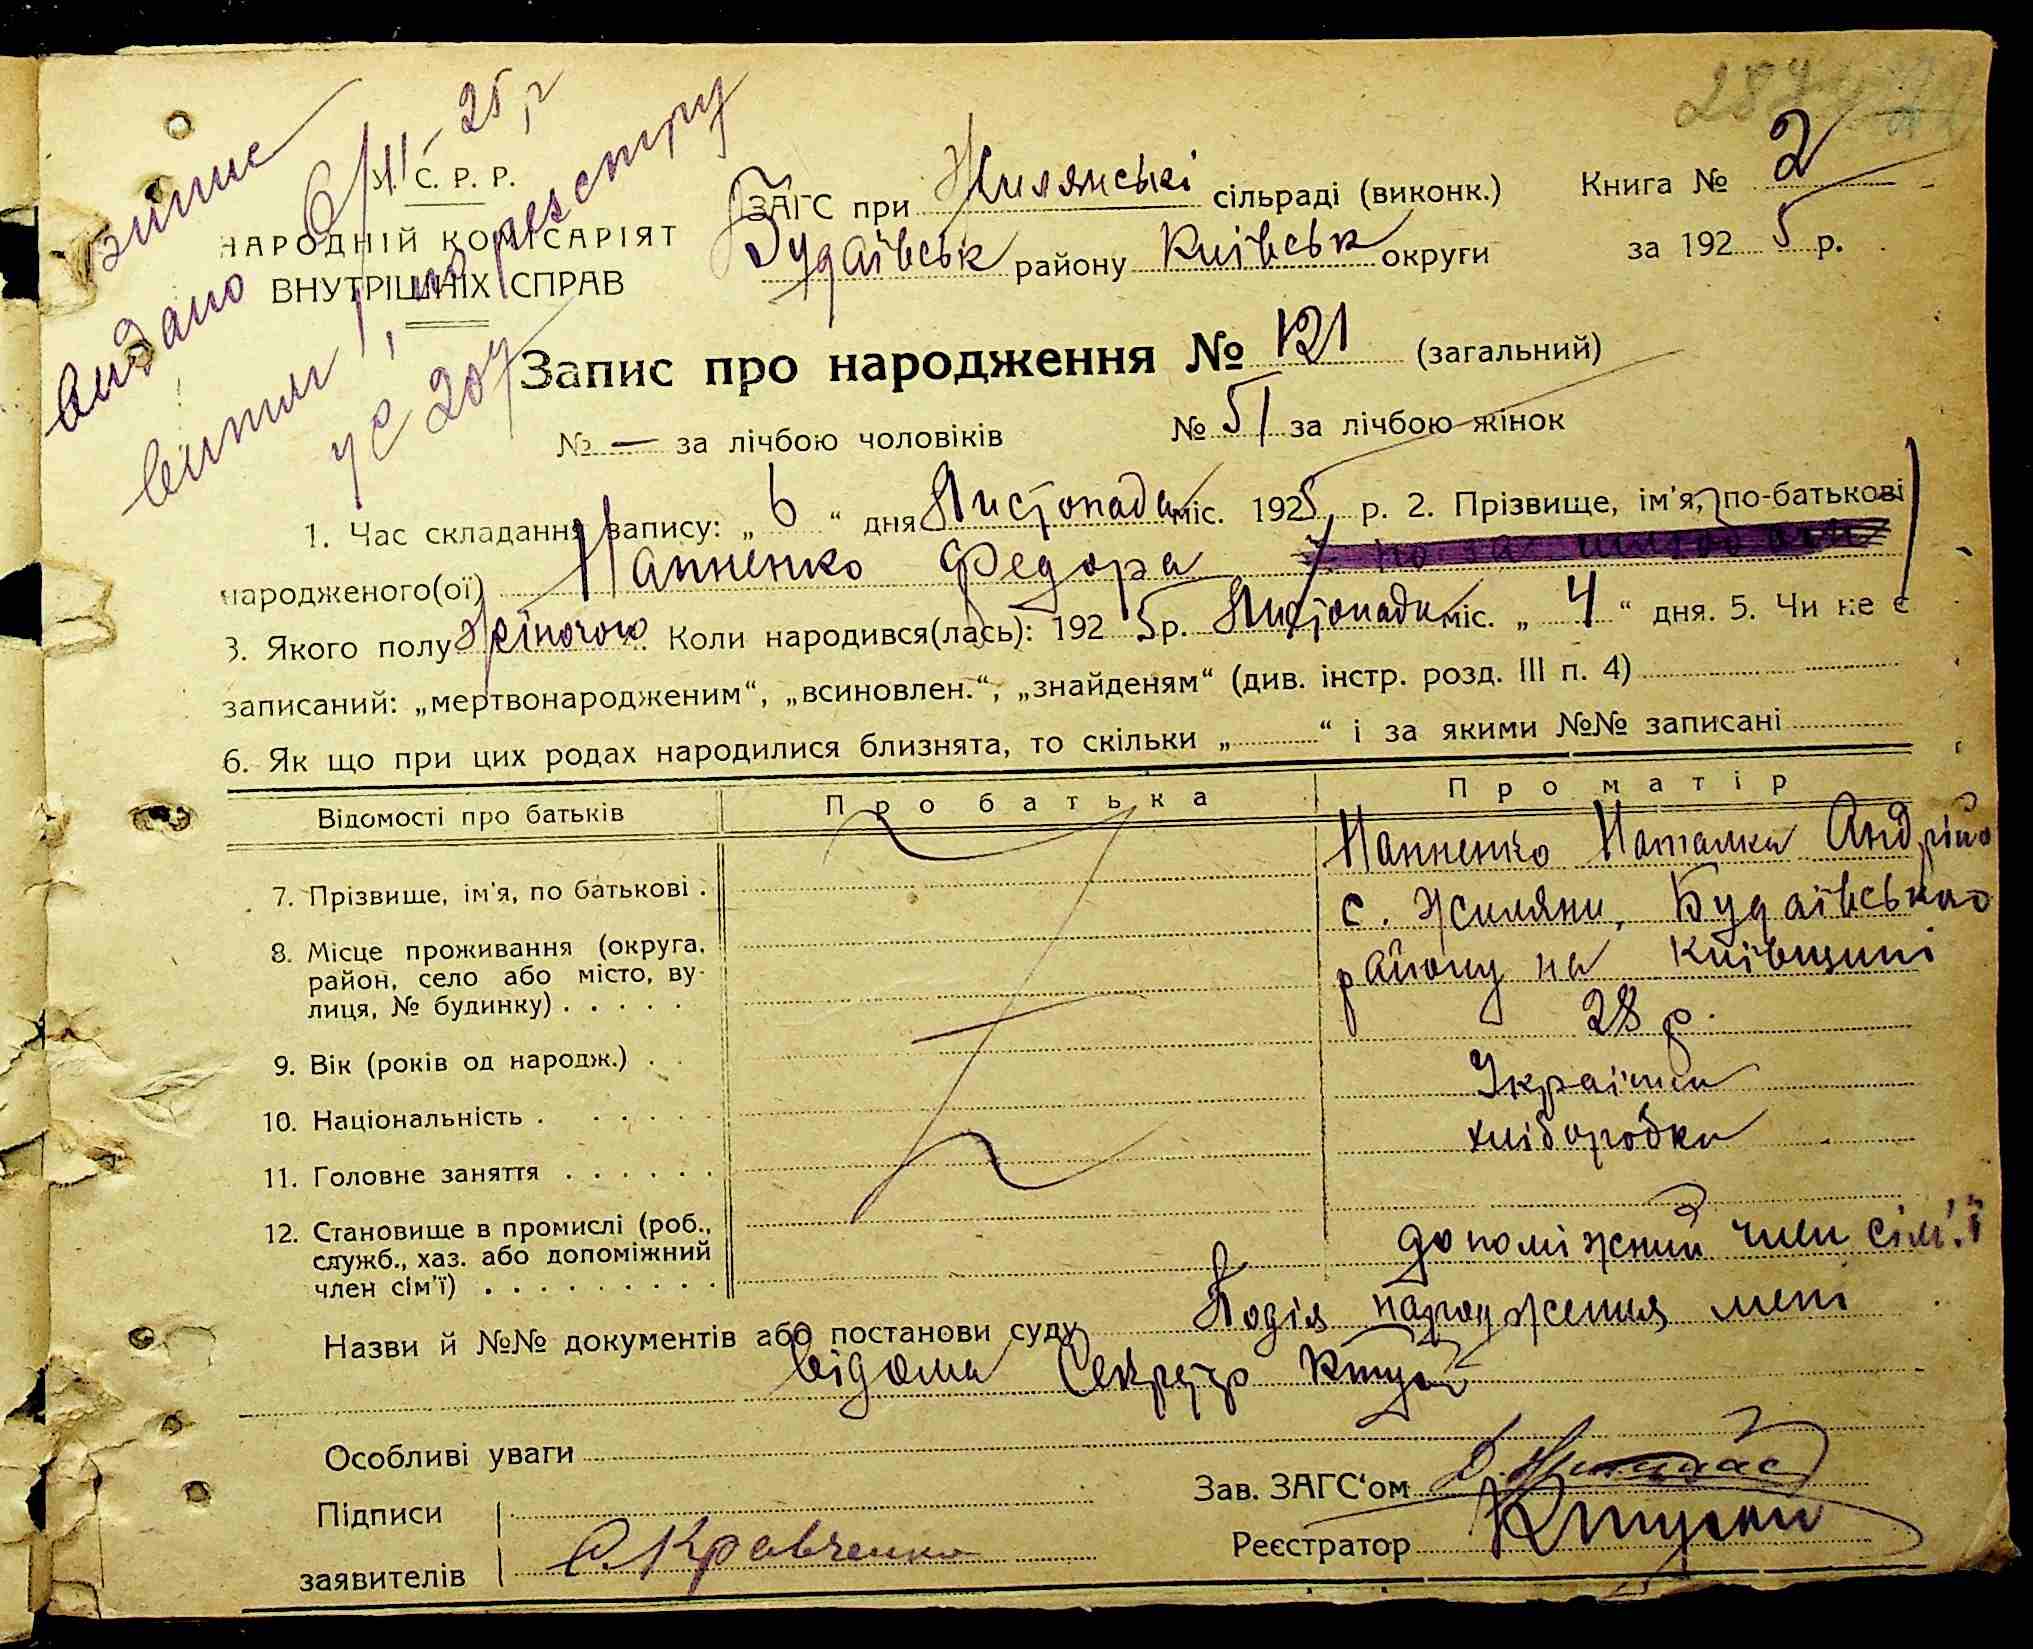 2
видано 6/XI-25 р
у. С. Р. Р.
НАРОДНІЙ КОМІСАРІЯТ
ВНУТРІШНІХ СПРАВ
реєстру
ЗАГС при Жилянські сільраді (виконк.) Книга № 2
Будаївськ району Київськ округи за 1925 р.
Запис про народження № 121 (загальний)
№ — за лічбою чоловіків № 51 за лічбою жінок
1. Час складання запису: „ 6 “ дня Листопада міс. 1925 р. 2. Прізвище, ім'я, по-батькові
народженого(ої) Напненко Федора
3. Якого полу жіночого Коли народився(лась): 1925 р. Листопада міс. „ 4 “ дня. 5. Чи не є
записаний: „мертвонародженим“, „всиновлен.“, „знайденям“ (див. інстр. розд. III п. 4)
6. Як що при цих родах народилися близнята, то скільки „ “ і за якими №№ записані
Відомості про батьків Про батька Про матір
7. Прізвище, ім'я, по батькові . Напненко Наталка Андрійо
8. Місце проживання (округа, район, село або місто, вулиця, № будинку) . . . . . с. Жиляни, Будаївського
району на Київщині
9. Вік (років од народж.) . . 28 р.
10. Національність . . . . . . Українка
11. Головне заняття . . . . . . хліборобка
12. Становище в промислі (роб., служб., хаз. або допоміжний член сім'ї) . . . . . . . . . допоміжний член сім'ї
Назви й №№ документів або постанови суду Подія народження мені
відома Секретр
Особливі уваги
Зав. ЗАГС'ом
Підписи
Реєстратор
заявителів О. Кравченко